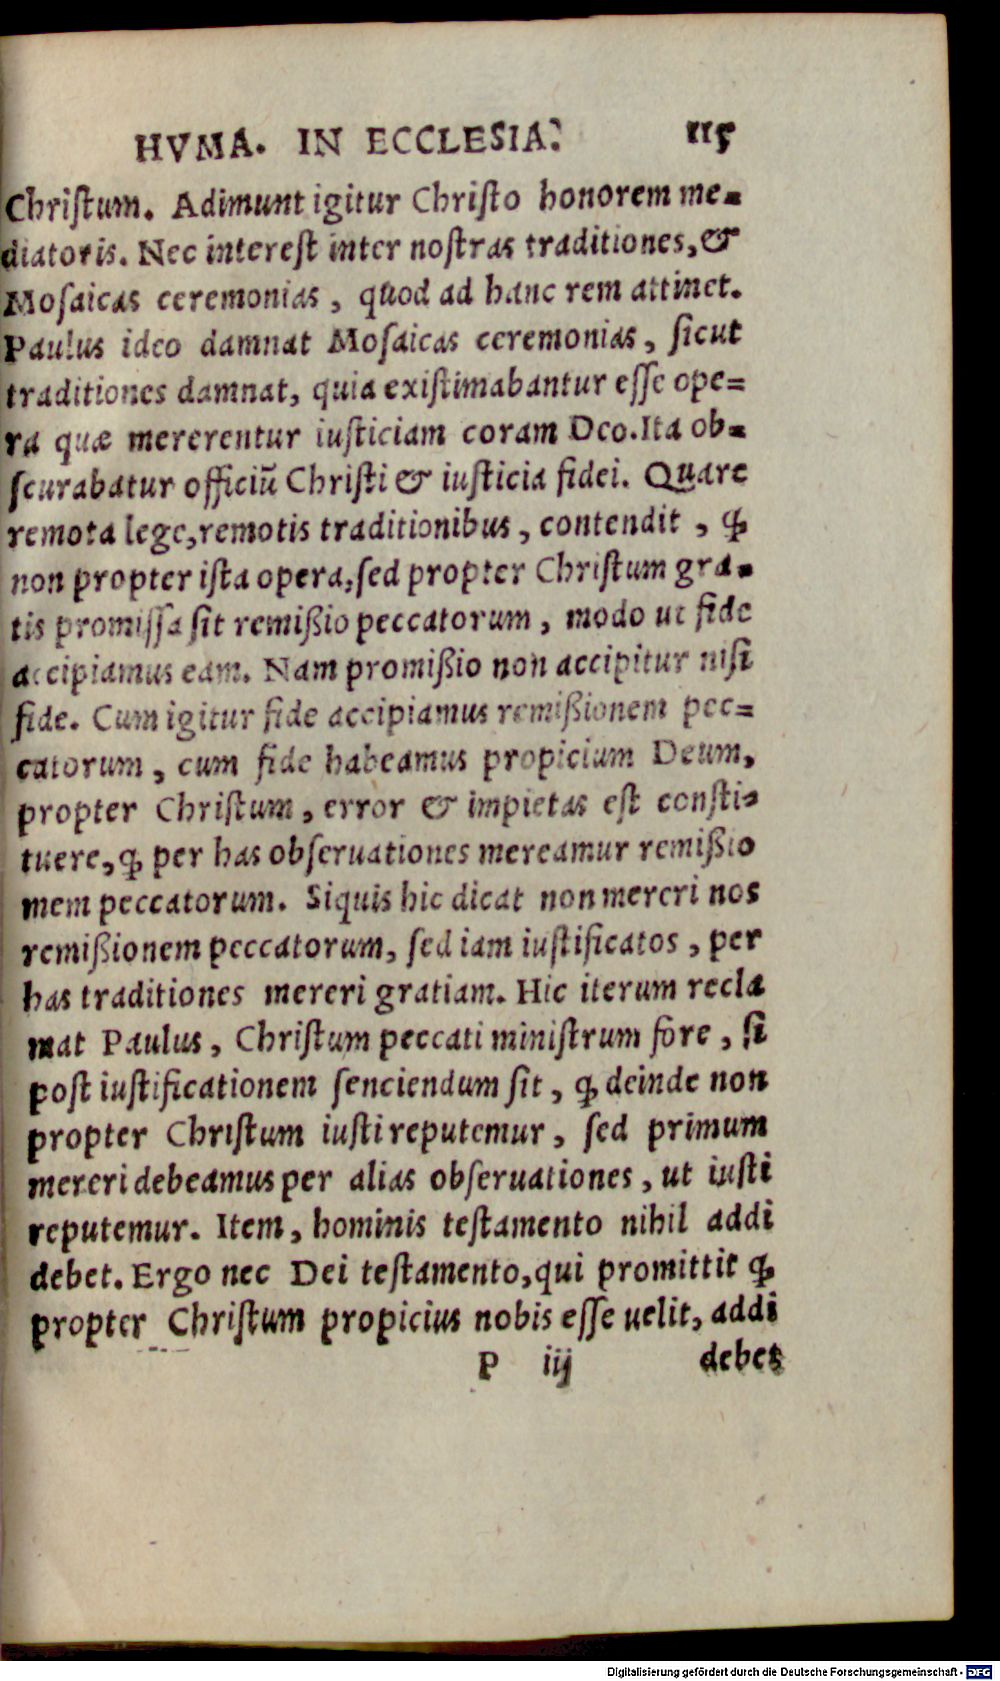 HVMA. IN ECCLESIA. 115
Chriſtum. Adimunt igitur Chriſto honorem me-
diatoris. Nec intereſt inter noſtras traditiones, &
Moſaicas ceremonias, quod ad hanc rem attinet.
Paulus ideo damnat Moſaicas ceremonias, ſicut
traditiones damnat, quia exiſtimabantur eſſe ope=
ra quæ mererentur iuſticiam coram Deo. Ita ob-
ſcurabatur officiũ Chriſti & iuſticia fidei. Quare
remota lege, remotis traditionibus, contendit, ꝙ
non propter iſta opera, ſed propter Chriſtum gra-
tis promiſſa ſit remißio peccatorum, modo ut fide
accipiamus eam. Nam promißio non accipitur niſi
fide. Cum igitur fide accipiamus remißionem pec=
catorum, cum fide habeamus propicium Deum,
propter Chriſtum, error & impietas eſt conſti-
tuere, ꝙ per has obſeruationes mereamur remißio
mem peccatorum. Siquis hic dicat non mereri nos
remißionem peccatorum, ſed iam iuſtificatos, per
has traditiones mereri gratiam. Hic iterum recla
mat Paulus, Chriſtum peccati miniſtrum fore, ſi
poſt iuſtificationem ſenciendum ſit, ꝙ deinde non
propter Chriſtum iuſti reputemur, ſed primum
mereri debeamus per alias obſeruationes, ut iuſti
reputemur. Item, hominis teſtamento nihil addi
debet. Ergo nec Dei teſtamento, qui promittit ꝙ
propter Chriſtum propicius nobis eſſe uelit, addi
P iij debet
Digitalisierung gefördert durch die Deutsche Forschungsgemeinschaft - DFG